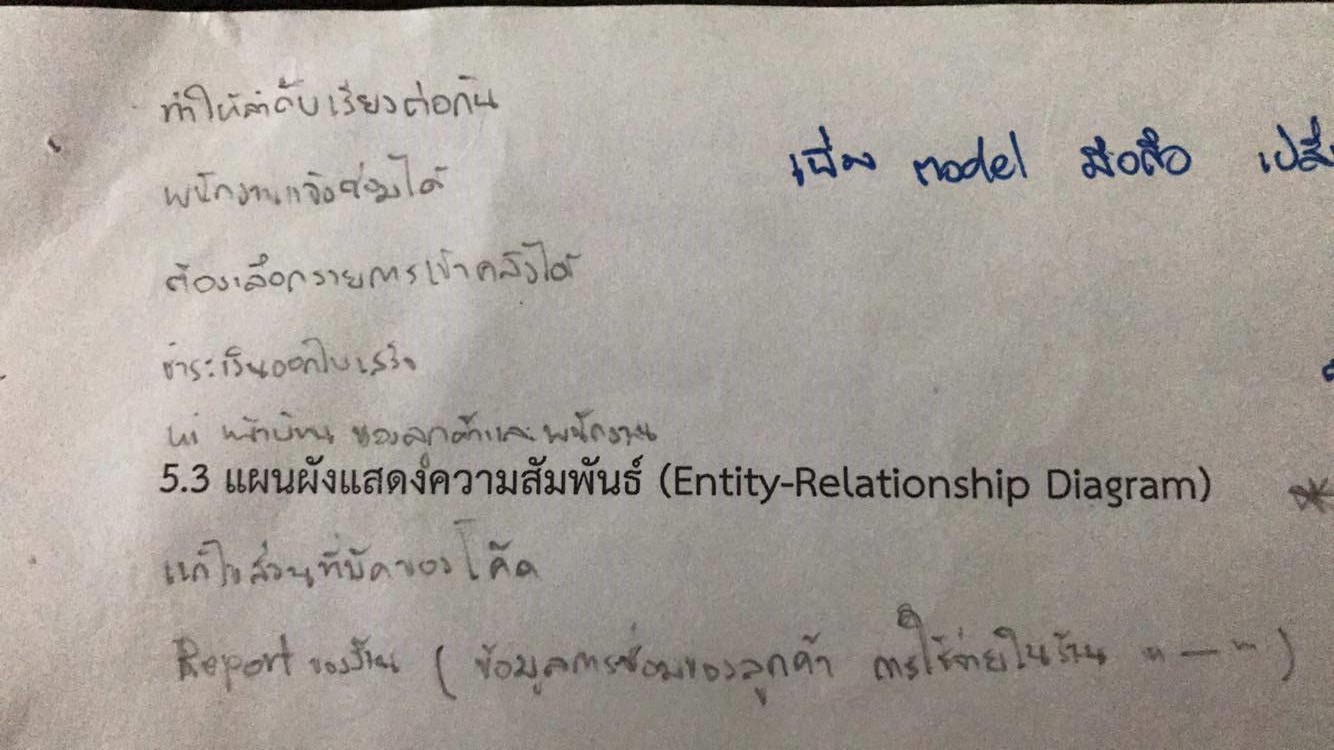 ทำให้ลำดับเรียงต่อกัน
เพิ่ม model มือถือ
พนักงานแจ้งซ่อมได้
ต้องเลือกรายการเข้าคลังได้
ชำระเงินออกใบเสร็จ
ของลูกค้าและพนักงาน
5.3 แผนผังแสดงความสัมพันธ์ (Entity-Relationship Diagram)
แก้ไขส่วนที่บัคของโค๊ด
Report ของร้าน ( ข้อมูลการซ่อมของลูกค้า การใช้จ่ายในร้าน " — " )